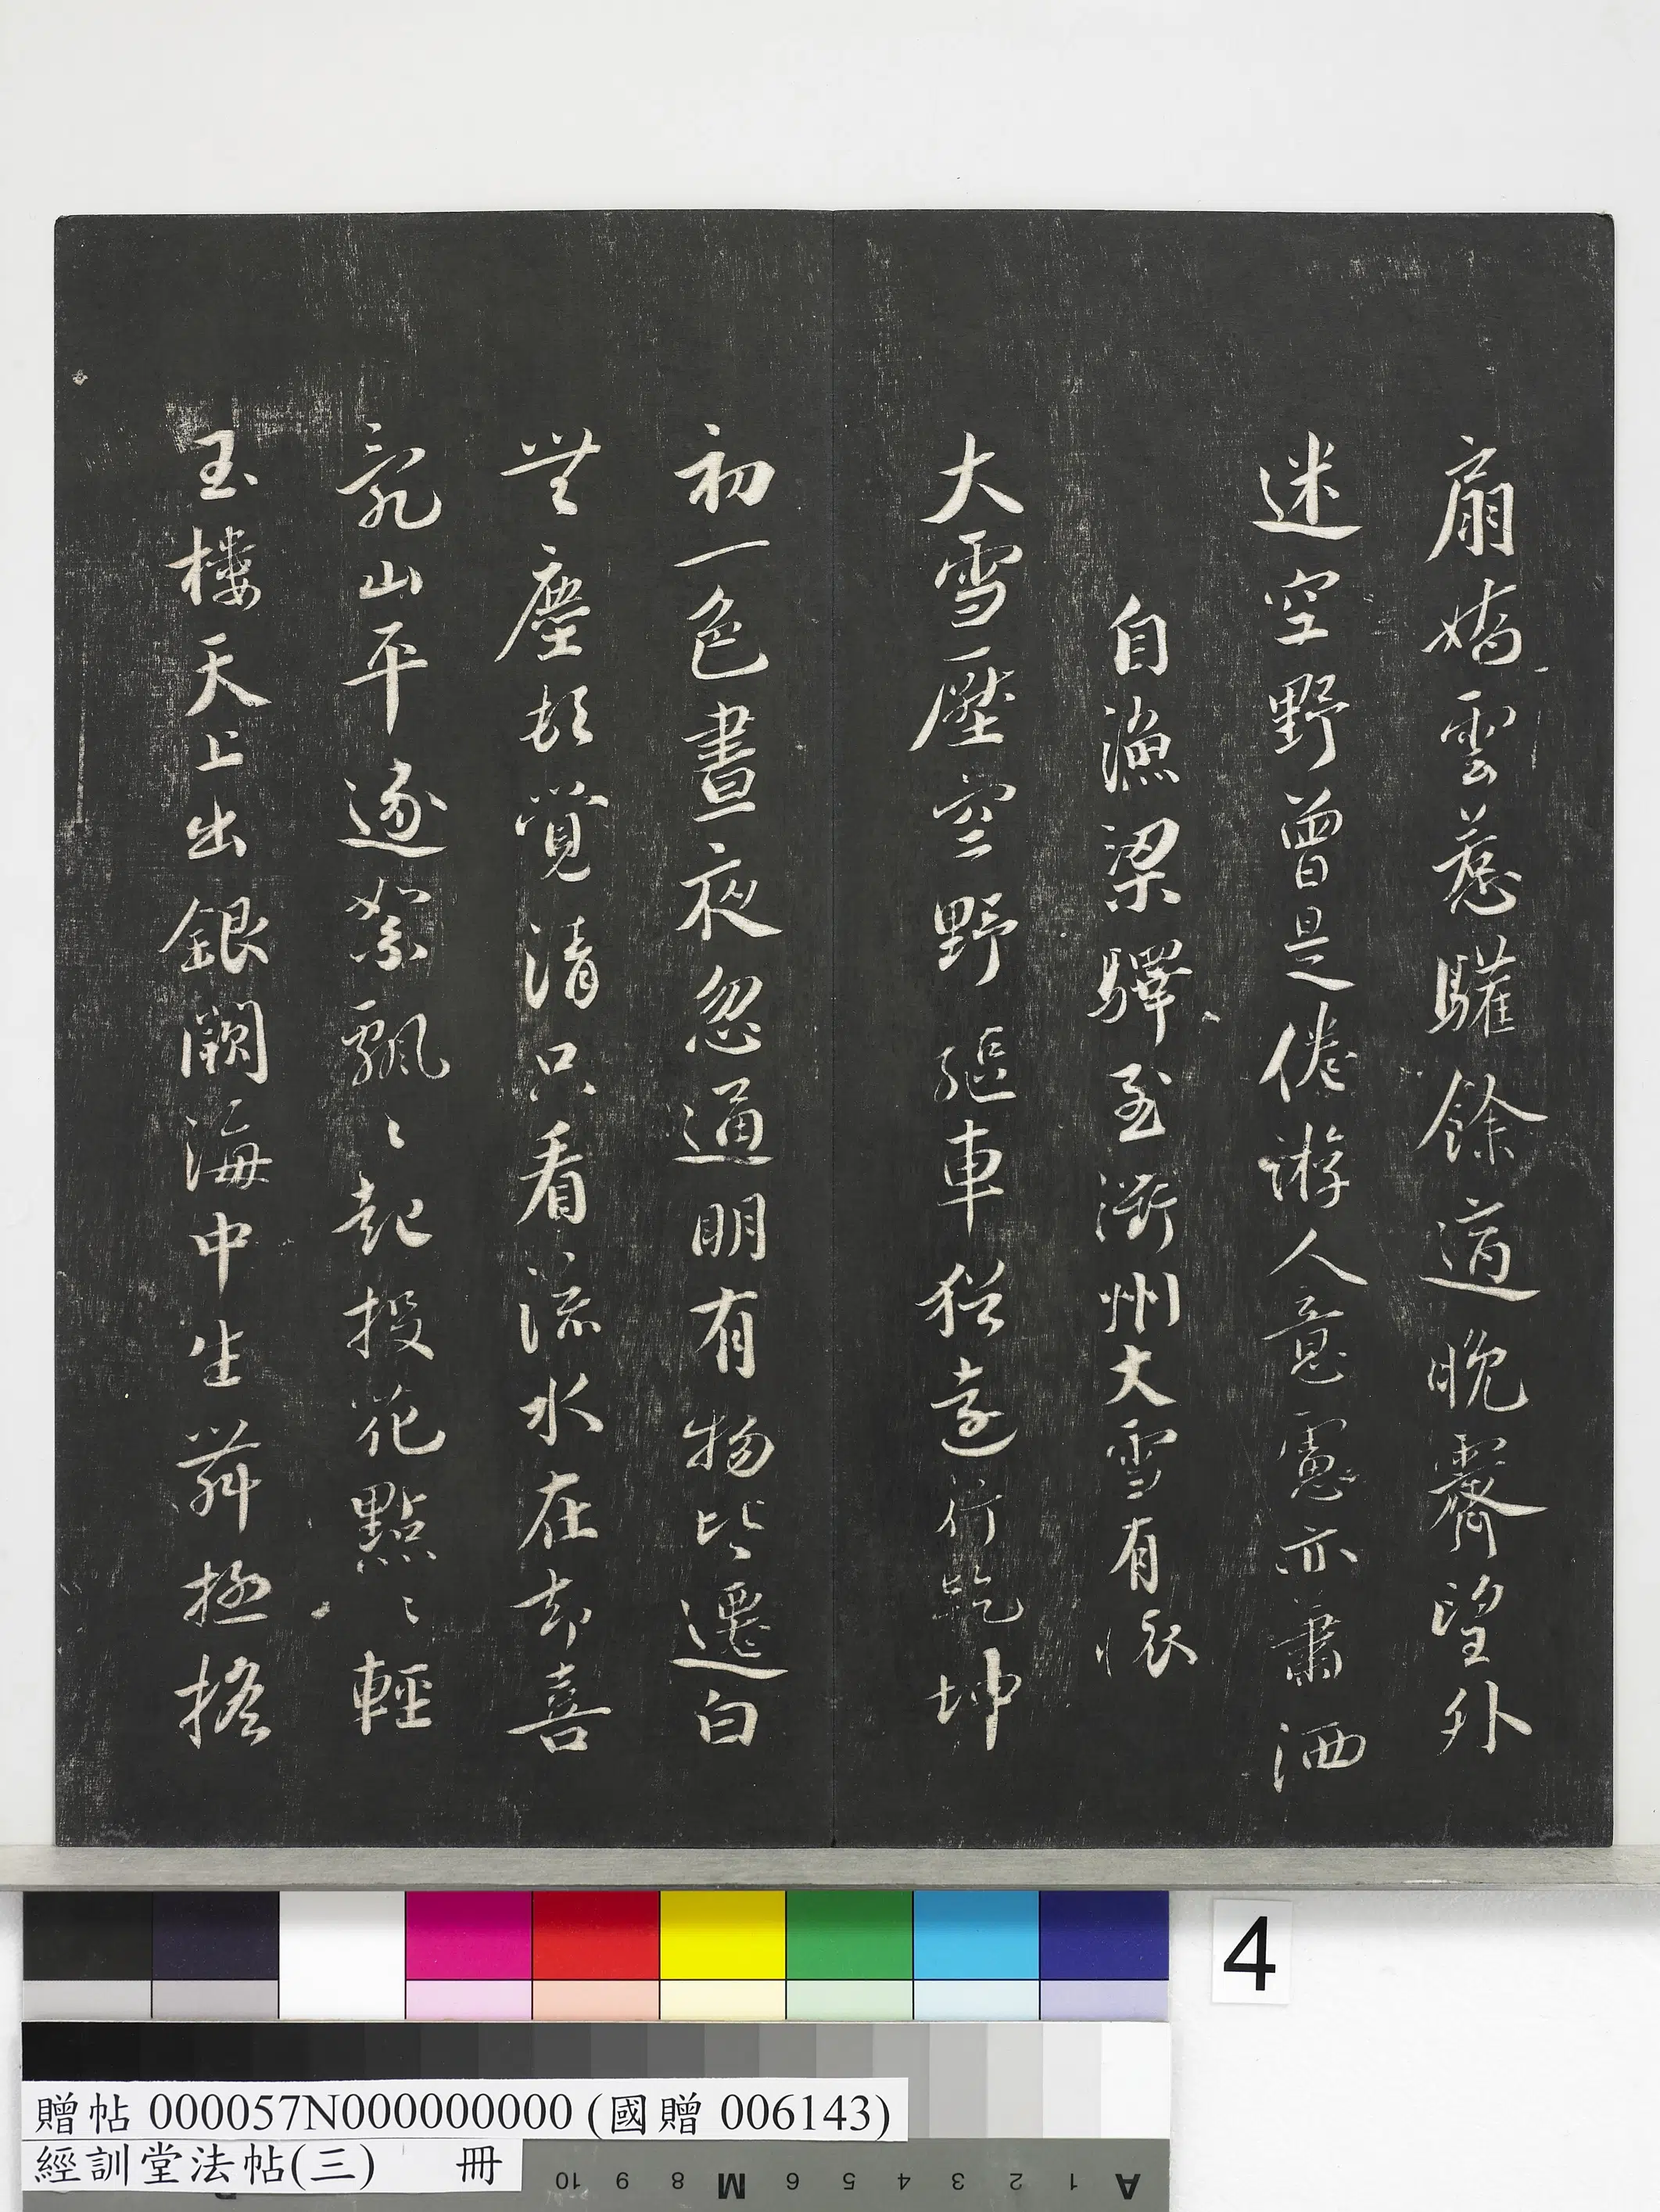 扇嬌雲葱驩餘道晚霽望外
迷空野曾是倦游人意思亦蕭洒
自漁梁驛至衢州大雪有懷
大雪壓空野驅車猶遠行乾坤
初一色晝夜忽通明有物皆遷白
無塵頓覺清只看流水在却喜
亂山平逐絮飄〻起投花點〻輕
玉樓天上出銀闕海中生舞極搖
4
贈帖 000057N000000000 (國贈 006143)
經訓堂法帖(三) 冊
10 9 8 M 6 5 4 3 2 1 A